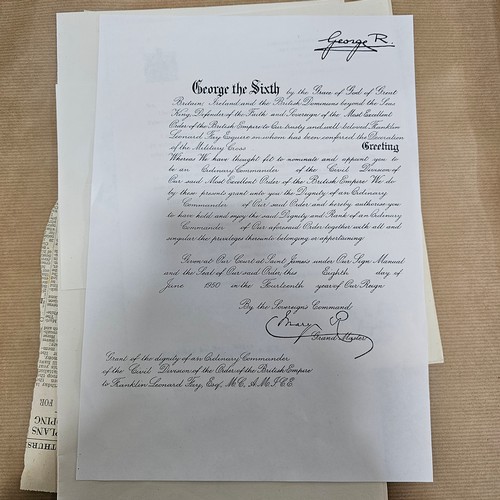 George R.
George the Sixth by the Grace of God of Great
Britain, Ireland and the British Dominions beyond the Seas
King, Defender of the Faith and Sovereign of the Most Excellent
Order of the British Empire to Our trusty and well beloved Franklin
Leonard Fay Esquire on whom has been conferred the Decoration
of the Military Cross Greeting
Whereas We have thought fit to nominate and appoint you to
be an Ordinary Commander of the Civil Division of
Our said Most Excellent Order of the British Empire We do
by these presents grant unto you the Dignity of an Ordinary
Commander of Our said Order and hereby authorise you
to have hold and enjoy the said Dignity and Rank of an Ordinary
Commander of Our aforesaid Order together with all and
singular the privileges thereunto belonging or appertaining.
Given at Our Court at Saint James's under Our Sign Manual
and the Seal of Our said Order this Eighth day of
June 1950 in the Fourteenth year of Our Reign
By the Sovereign's Command
Mary R
Grand Master
Grant of the dignity of an Ordinary Commander
of the Civil Division of the Order of the British Empire
to Franklin Leonard Fay, Esq, M.C. A.M.I.C.E.
THURS
PLANS
PPING
FOR